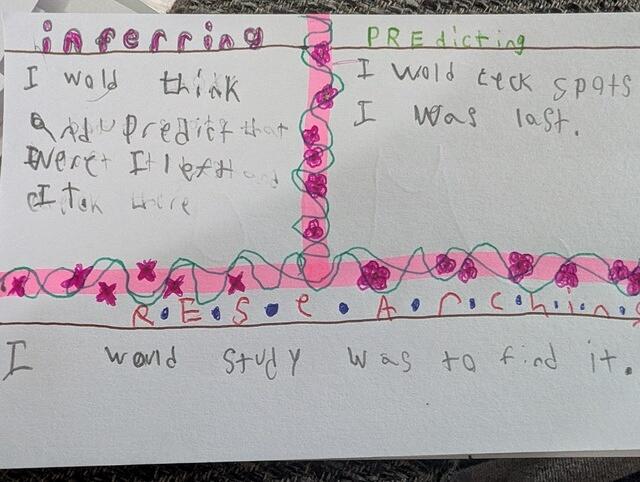 inferring
I wold think
and u predict that
Were It left and
I
PREdicting
I wold ceck spots
I was last.
R.E.S.e.A.r.c.h.i.n.g
I would study was to find it.